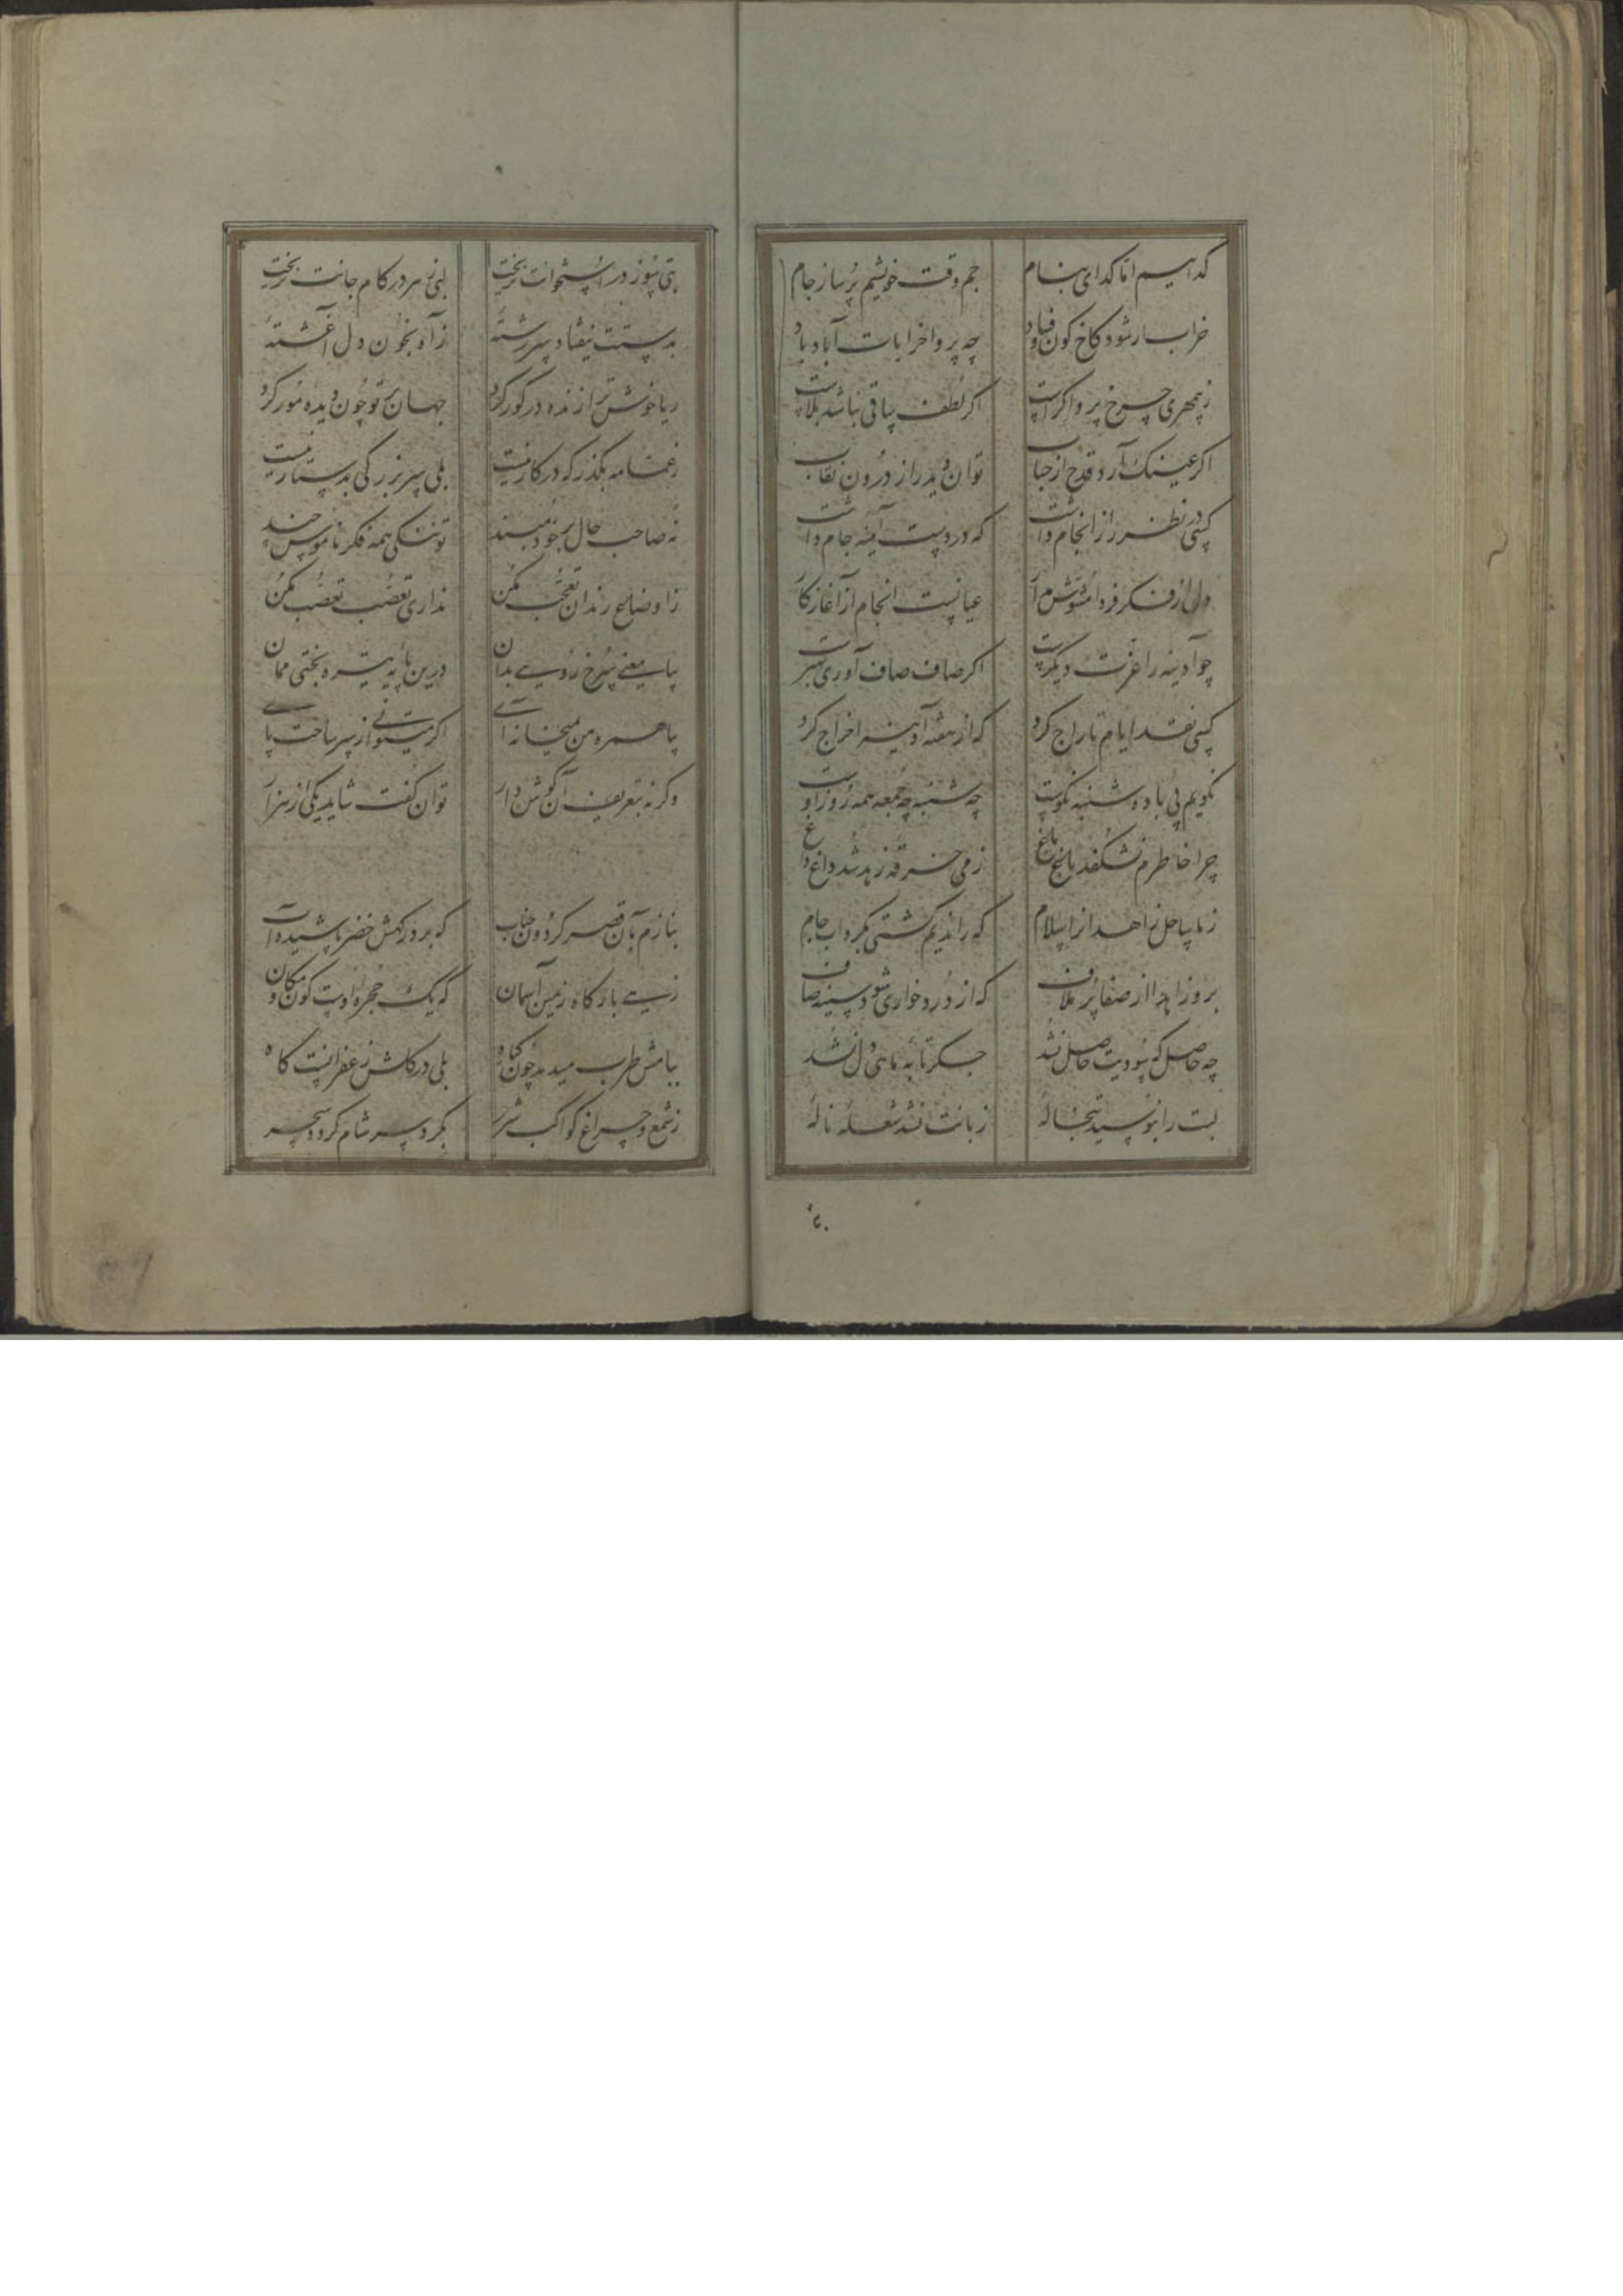 گداییم اما گدای بنام جم وقت خویشیم پر ساز جام
خراب ار شود کاخ کون و فساد چه پروا خرابات آباد باد
ز بیمهری چرخ پروا کراست اگر لطف ساقی نباشد بلاست
اگر عینک آرد قدح از حباب توان دید راز درون نقاب
کسی در نظر راز انجام داشت که در دست آیینه جام داشت
دل از فکر فردا مشوش مدار عیانست انجام از آغاز کار
چو آدینه را عزت دیگرست اگر صاف صاف آوری بهترست
کسی نقد ایام تاراج کرد که از هفته آدینه اخراج کرد
نگویم پی باده شنبه نکوست چه شنبه چه جمعه همه روز اوست
چرا خاطرم نشکفد باغ باغ ز می خرقه زهد شد داغ داغ
ز ما ساحل زاهدان را سلام که راندیم کشتی بگرداب جام
برو زاهدا از صفا پر ملاف که از درد خواری شود سینه صاف
چه حاصل که سودیت حاصل نشد جگر تابه ماهی دل نشد
لبت را نبوسید تبخاله زبانت نشد شعله ناله
تبی سوز در استخوانت نریخت لبی زهر در کام جانت نریخت
بدستت نیفتاد سررشته ز آه بخون دل آغشته
ریا خوش ترا زنده در گور کرد جهان بر تو چون دیده مور کرد
ز عمامه بگذر که در کار نیست بلی سر بزرگی بدستار نیست
نه صاحب حال بر خود مبند تو ننگی همه فکر ناموس چند
ز اوضاع رندان تعجب مکن نداری تعصب تعصب مکن
بیا معنی سرخ رویی بدان درین پایه تیره بختی ممان
بیا همره من میخانه آی اگر میتوانی ز سر ساخت پای
وگرنه بتعریف آن گوش دار توان گفت شاید یکی از هزار
بنازم بآن قصر گردون جناب که بر درگهش خضر پاشیده آب
زهی بارگاه زمین آسمان که یک حجره اوست کون و مکان
ببامش طرب میدمد چون گیاه بلی در گلش زعفرانست کاه
ز شمع و چراغ کواکب شرر بگرد سر شام گردد سحر